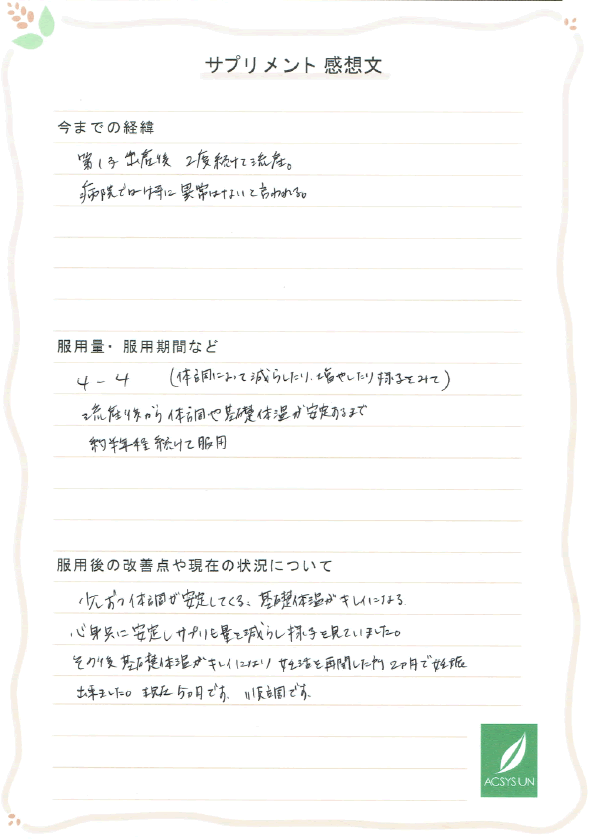 サプリメント 感想文
今までの経緯
第1子 出産後 2度続けて流産。
病院では特に異常はないと言われる。
服用量・服用期間など
4-4 (体調によって減らしたり、増やしたり様子をみて)
流産後から体調や基礎体温が安定するまで
約半年程続けて服用
服用後の改善点や現在の状況について
少しずつ体調が安定してくる、基礎体温がキレイになる
心身共に安定しサプリも量を減らし様子を見ていました。
その後基礎体温がキレイになり 妊活を再開した所2ヵ月で妊娠
出来ました。現在5ヵ月です。順調です。
ACSYSUN